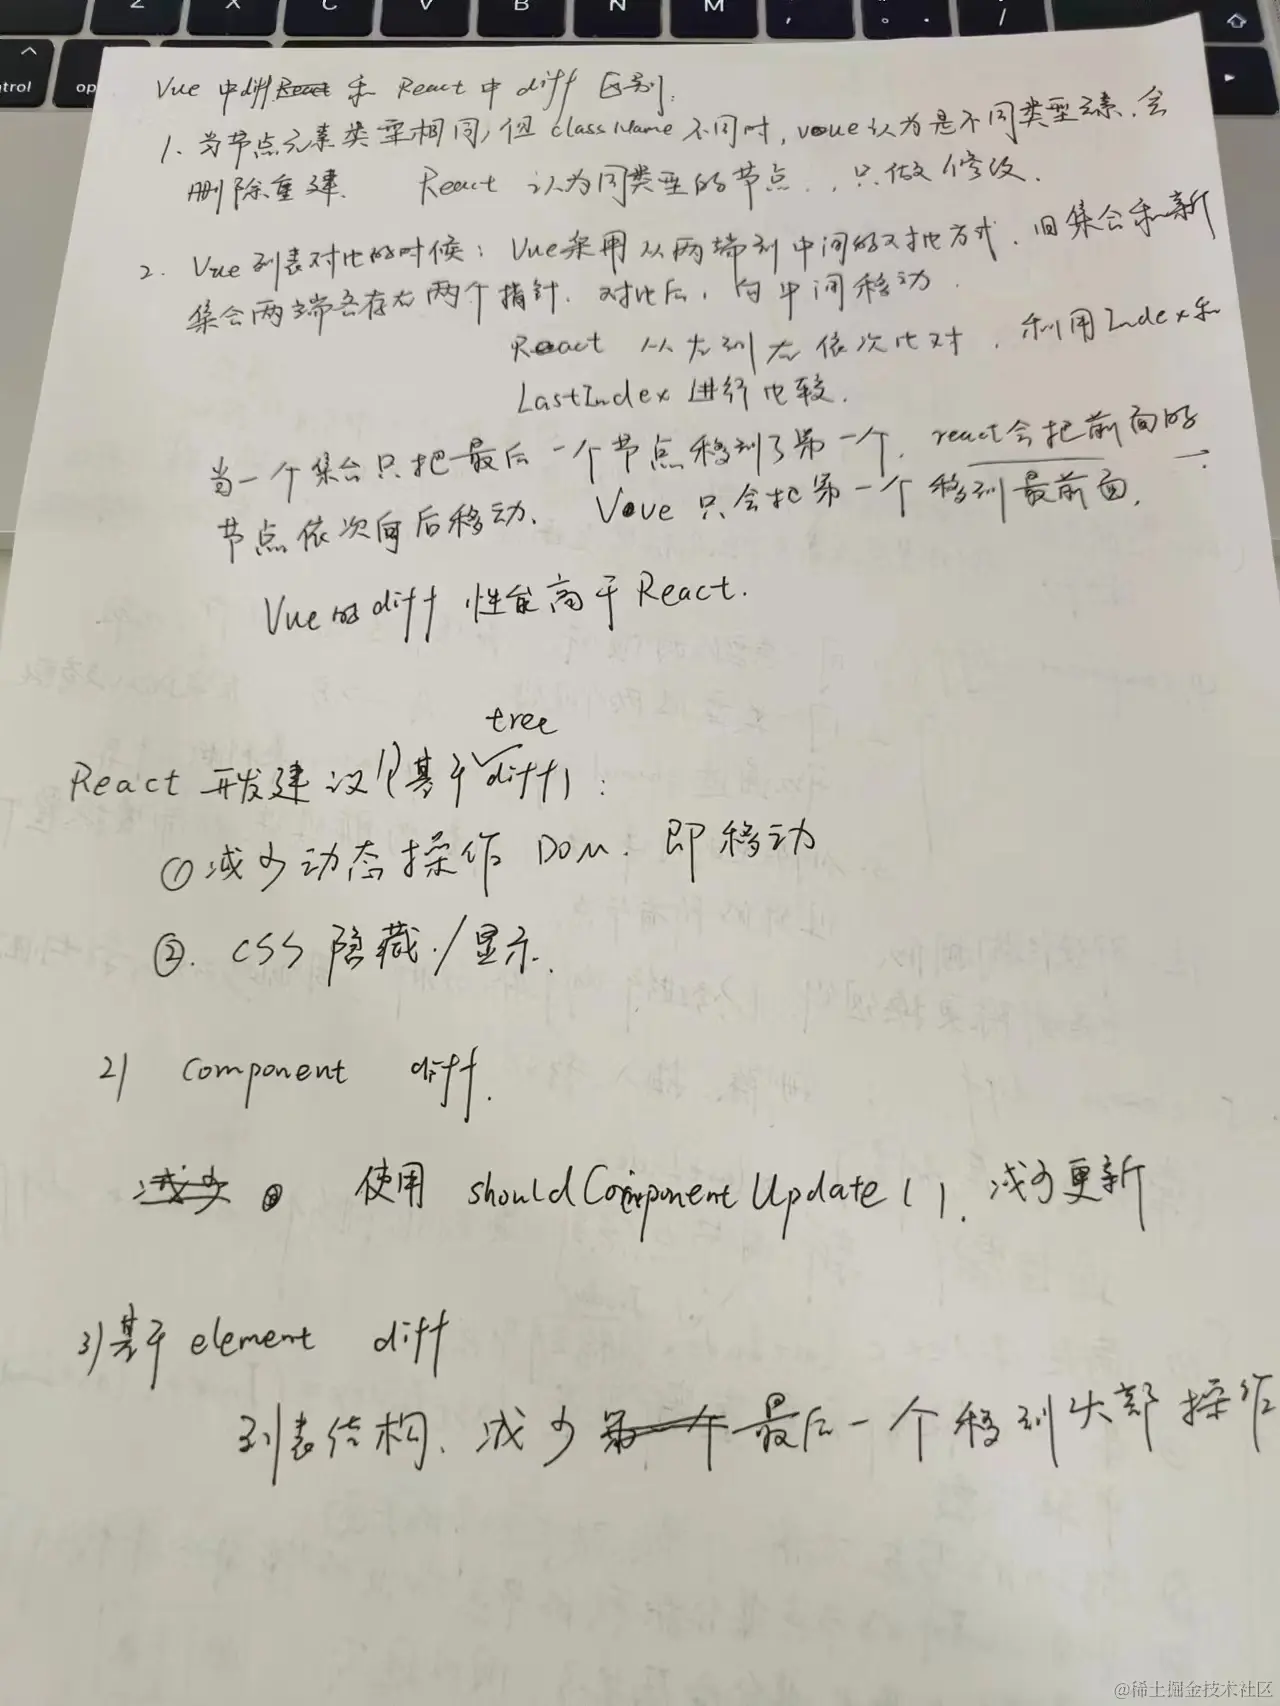 Z X C V B N M
control
op
Vue 中diff 和 React 中 diff 区别:
1. 当节点元素类型相同,但 className 不同时,vue认为是不同类型元素,会
删除重建. React 认为同类型的节点..只做修改.
2. Vue列表对比的时候: Vue采用从两端到中间的对比方式. 旧集合和新
集合两端各存在两个指针. 对比后,向中间移动.
React 从左到右依次比对,利用Index和
LastIndex 进行比较.
当一个集合只把最后一个节点移到了第一个. react会把前面的
节点依次向后移动. Vue 只会把第一个移到最前面.
Vue的diff 性能高于React.
tree
React 开发建议1(基于diff):
①减少动态操作DOM. 即移动
②. CSS 隐藏/显示.
2) Component diff.
使用 shouldComponentUpdate(). 减少更新
3)基于element diff
列表结构. 减少最后一个移到头部操作
@稀土掘金技术社区